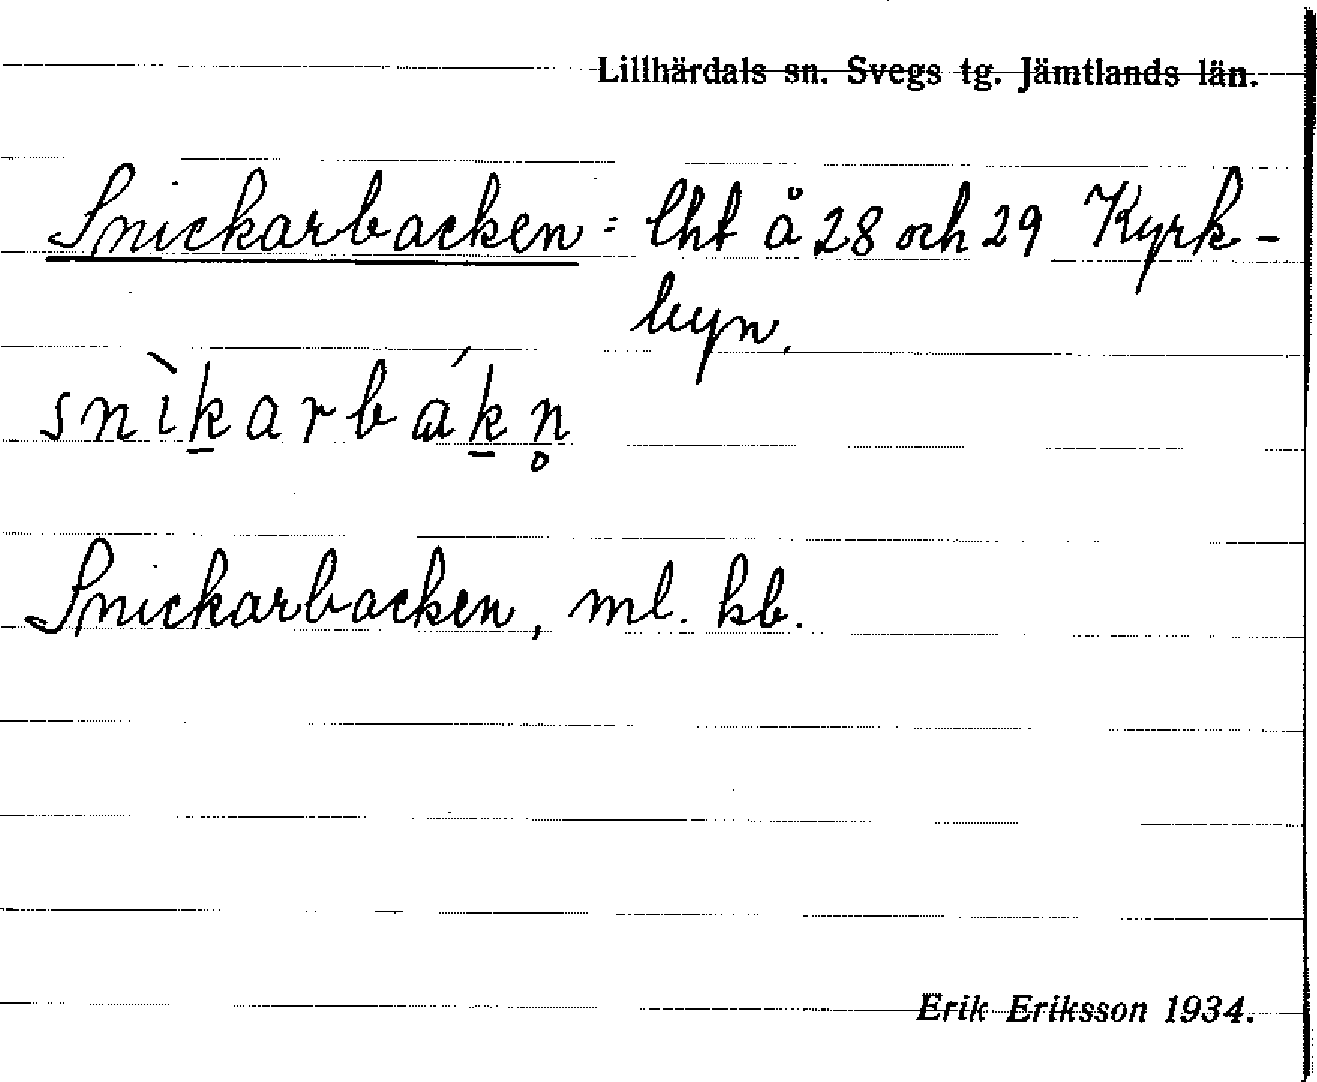 Lillhärdals sn. Svegs tg. Jämtlands län.
Snickarbacken = lht å 28 och 29 Kyrk-
byn.
snìk̠arbák̠n̥
Snickarbacken, ml. kb.
Erik Eriksson 1934.